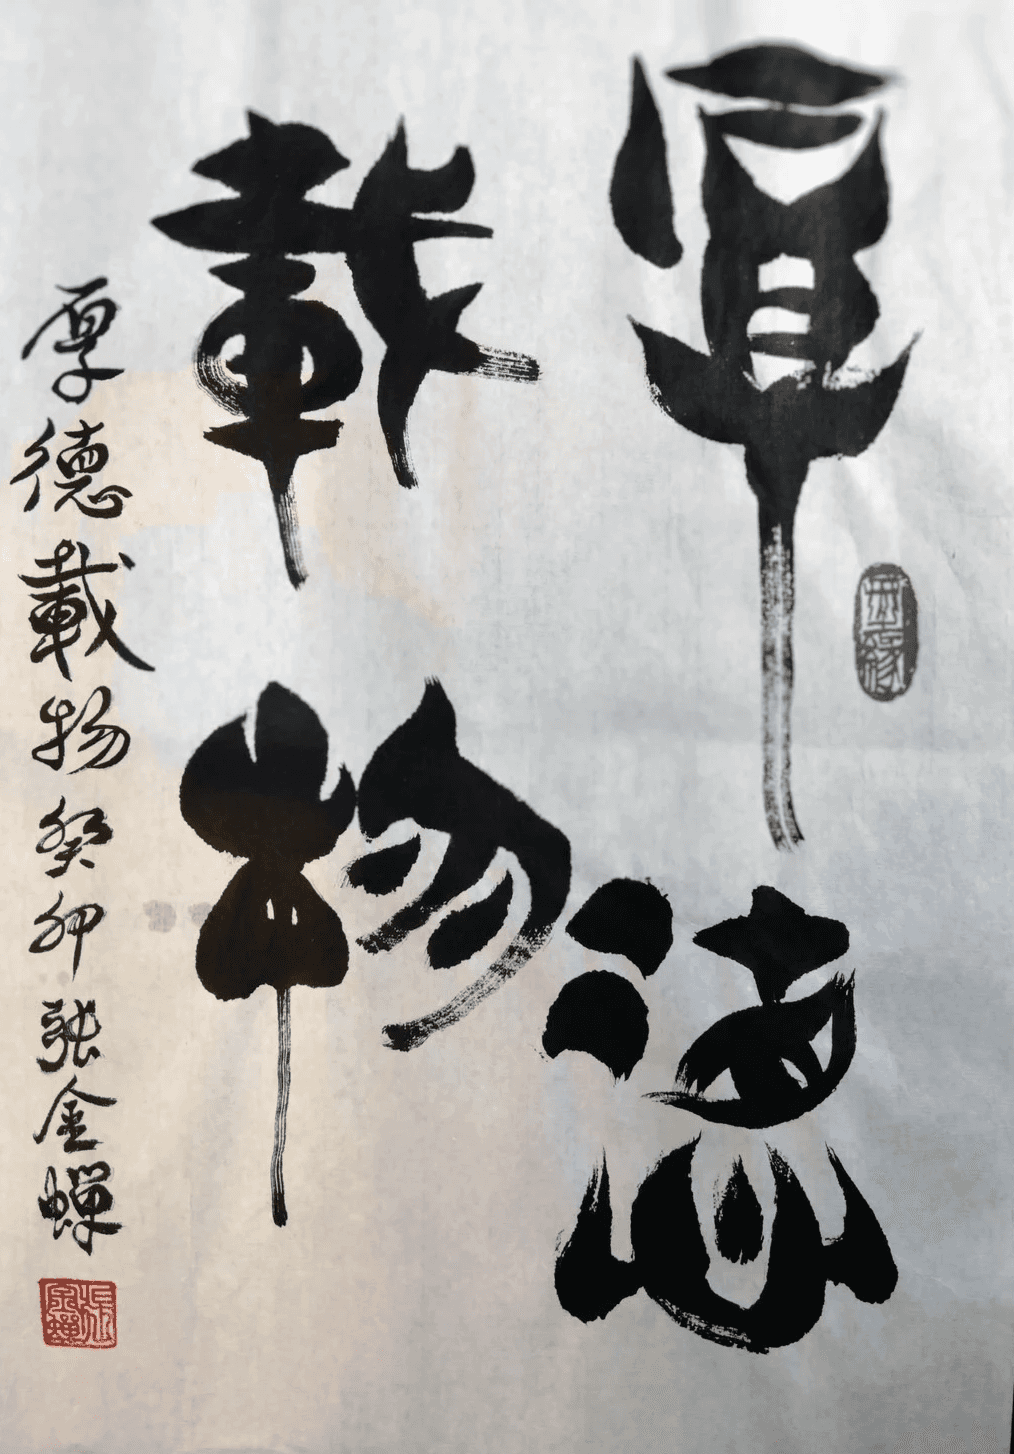 厚德
載物
厚德載物癸卯張金蟬
張金蟬